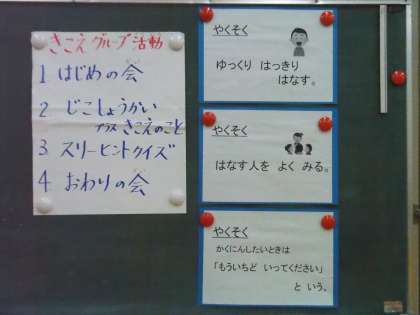 きこえグループ活動
1 はじめの会
2 じこしょうかい
プラス きこえのこと
3 スリーヒントクイズ
4 おわりの会
やくそく
ゆっくり はっきり
はなす。
やくそく
はなす人を よく みる。
やくそく
かくにんしたいときは
「もういちど いってください」
と いう。